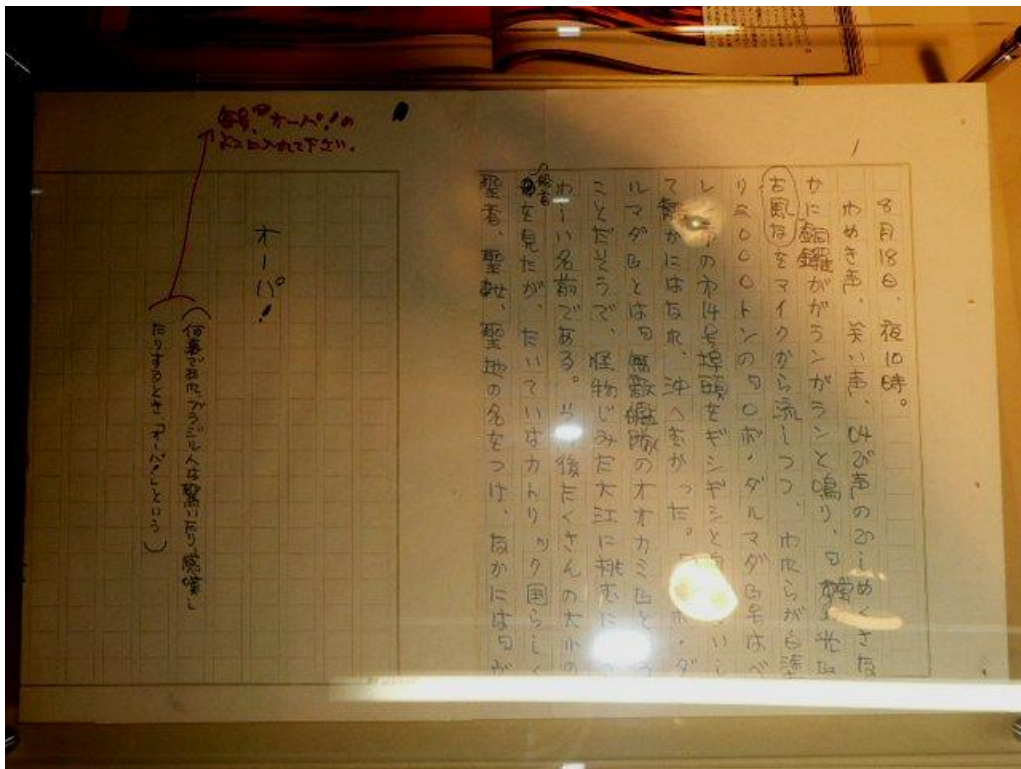 8月18日、夜10時。
わめき声、笑い声、叫び声のひしめくさな
かに銅鑼がガランガランと鳴り、
古風なをマイクから流しつつ、われらが白塗
り2000トンのロボ・ダルマダ号はベ
14号埠頭をギシギシと
て静かにはなれ、沖へむかった。ロボ・ダ
ルマダとは無敵艦隊のオオカミ
ことだそうで、怪物じみた大江に挑むに
い名前である。その後たくさんの大小の
船を見たが、たいていはカトリック国らしく
聖者、聖地の名をつけ、なかには
毎号、オーパ!の
よこに入れて下さい。
オーパ!
(何事であれ、ブラジル人は驚いたり、感嘆し
たりするとき「オーパ!」という)
1